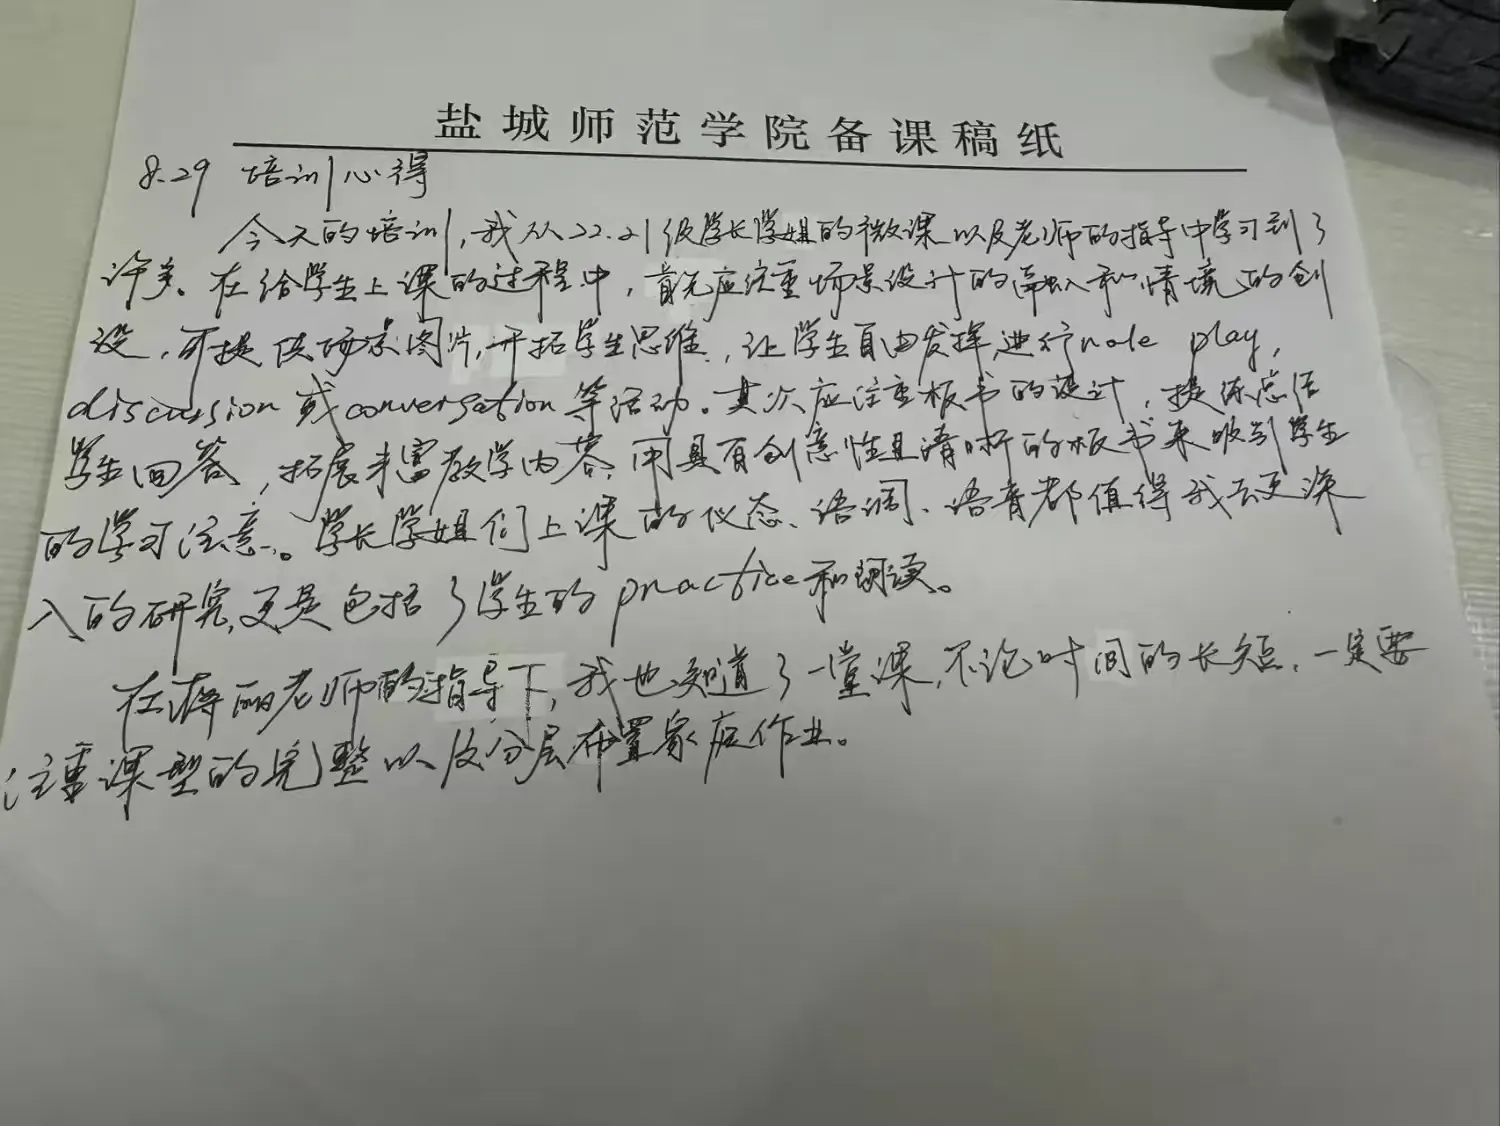 盐城师范学院备课稿纸
8.29 培训心得
今天的培训,我从22.21级学长学姐的微课以及老师的指导中学习到了
许多。在给学生上课的过程中,首先应注重场景设计的和情境的创
设,可提供场景图片,开拓学生思维,让学生自由发挥,进行role play,
discussion或conversation等活动。其次应注重板书的设计,提炼总结
学生回答,拓展丰富教学内容,用具有创意性且清晰的板书来吸引学生
的学习注意。学长学姐们上课的仪态、语调、语音都值得我去更深
入的研究,更是包括了学生的practice和朗读。
在蒋丽老师的指导下,我也知道了一堂课,不论时间的长短,一定要
注重课型的完整以及分层布置家庭作业。